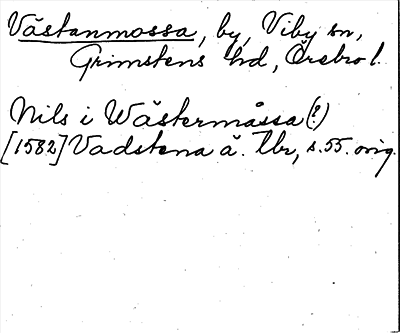 Västanmossa, by, Viby sn,
Grimstens hd, Örebro l.
Nils i Wästermåssa (?)
[1582] Vadstena ä. tbr, s. 55. orig.